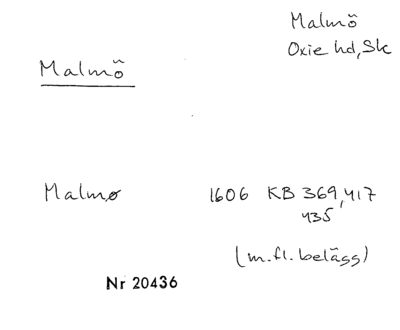 Malmö
Oxie hd, Sk
Malmö
Malmø 1606 KB 369, 417
435
(m.fl. belägg)
Nr 20436